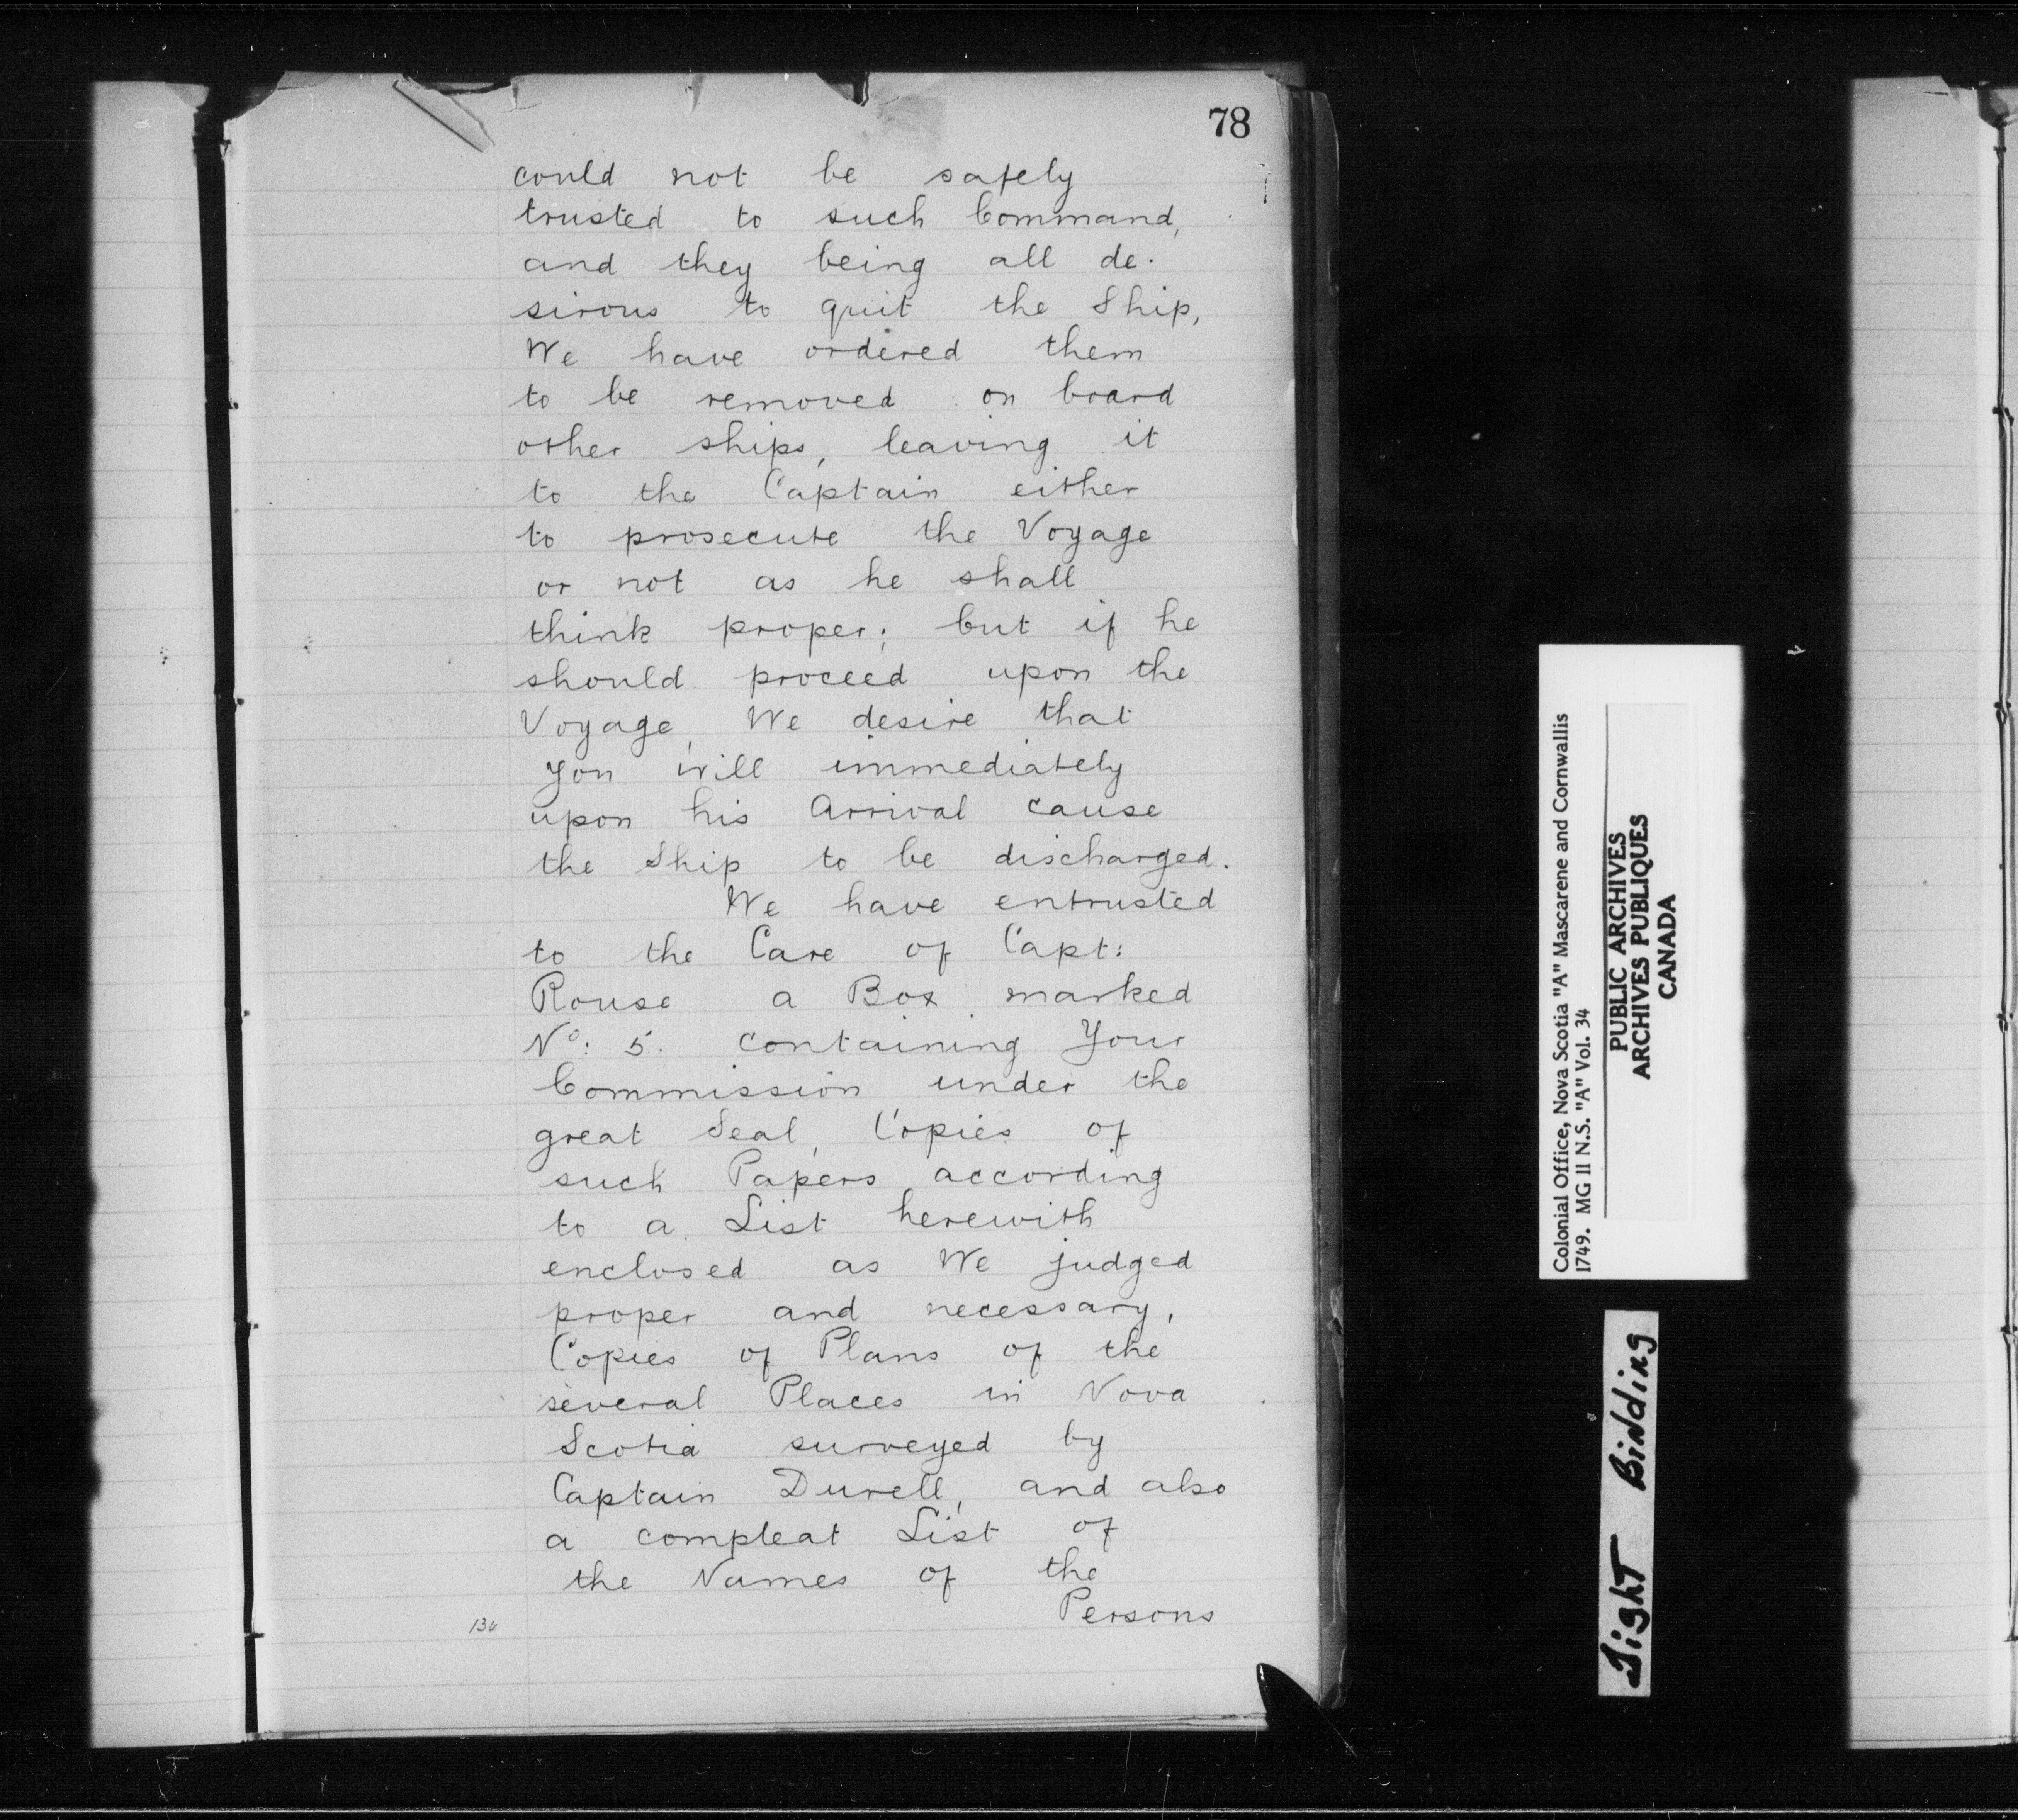 78
could not be safely
trusted to such Command,
and they being all de-
sirous to quit the Ship,
We have ordered them
to be removed on board
other ships, leaving it
to the Captain either
to prosecute the Voyage
or not as he shall
think proper; but if he
should proceed upon the
Voyage, We desire that
you will immediately
upon his Arrival cause
the Ship to be discharged.
We have entrusted
to the Care of Capt:
Rouse a Box marked
No: 5. containing Your
Commission under the
great Seal, Copies of
such Papers according
to a List herewith
enclosed as We judged
proper and necessary,
Copies of Plans of the
several Places in Nova
Scotia surveyed by
Captain Durell, and also
a compleat List of
the Names of the
Persons
Colonial Office, Nova Scotia "A" Mascarene and Cornwallis
1749. MG II N.S. "A" Vol. 34
PUBLIC ARCHIVES
ARCHIVES PUBLIQUES
CANADA
Tight Binding